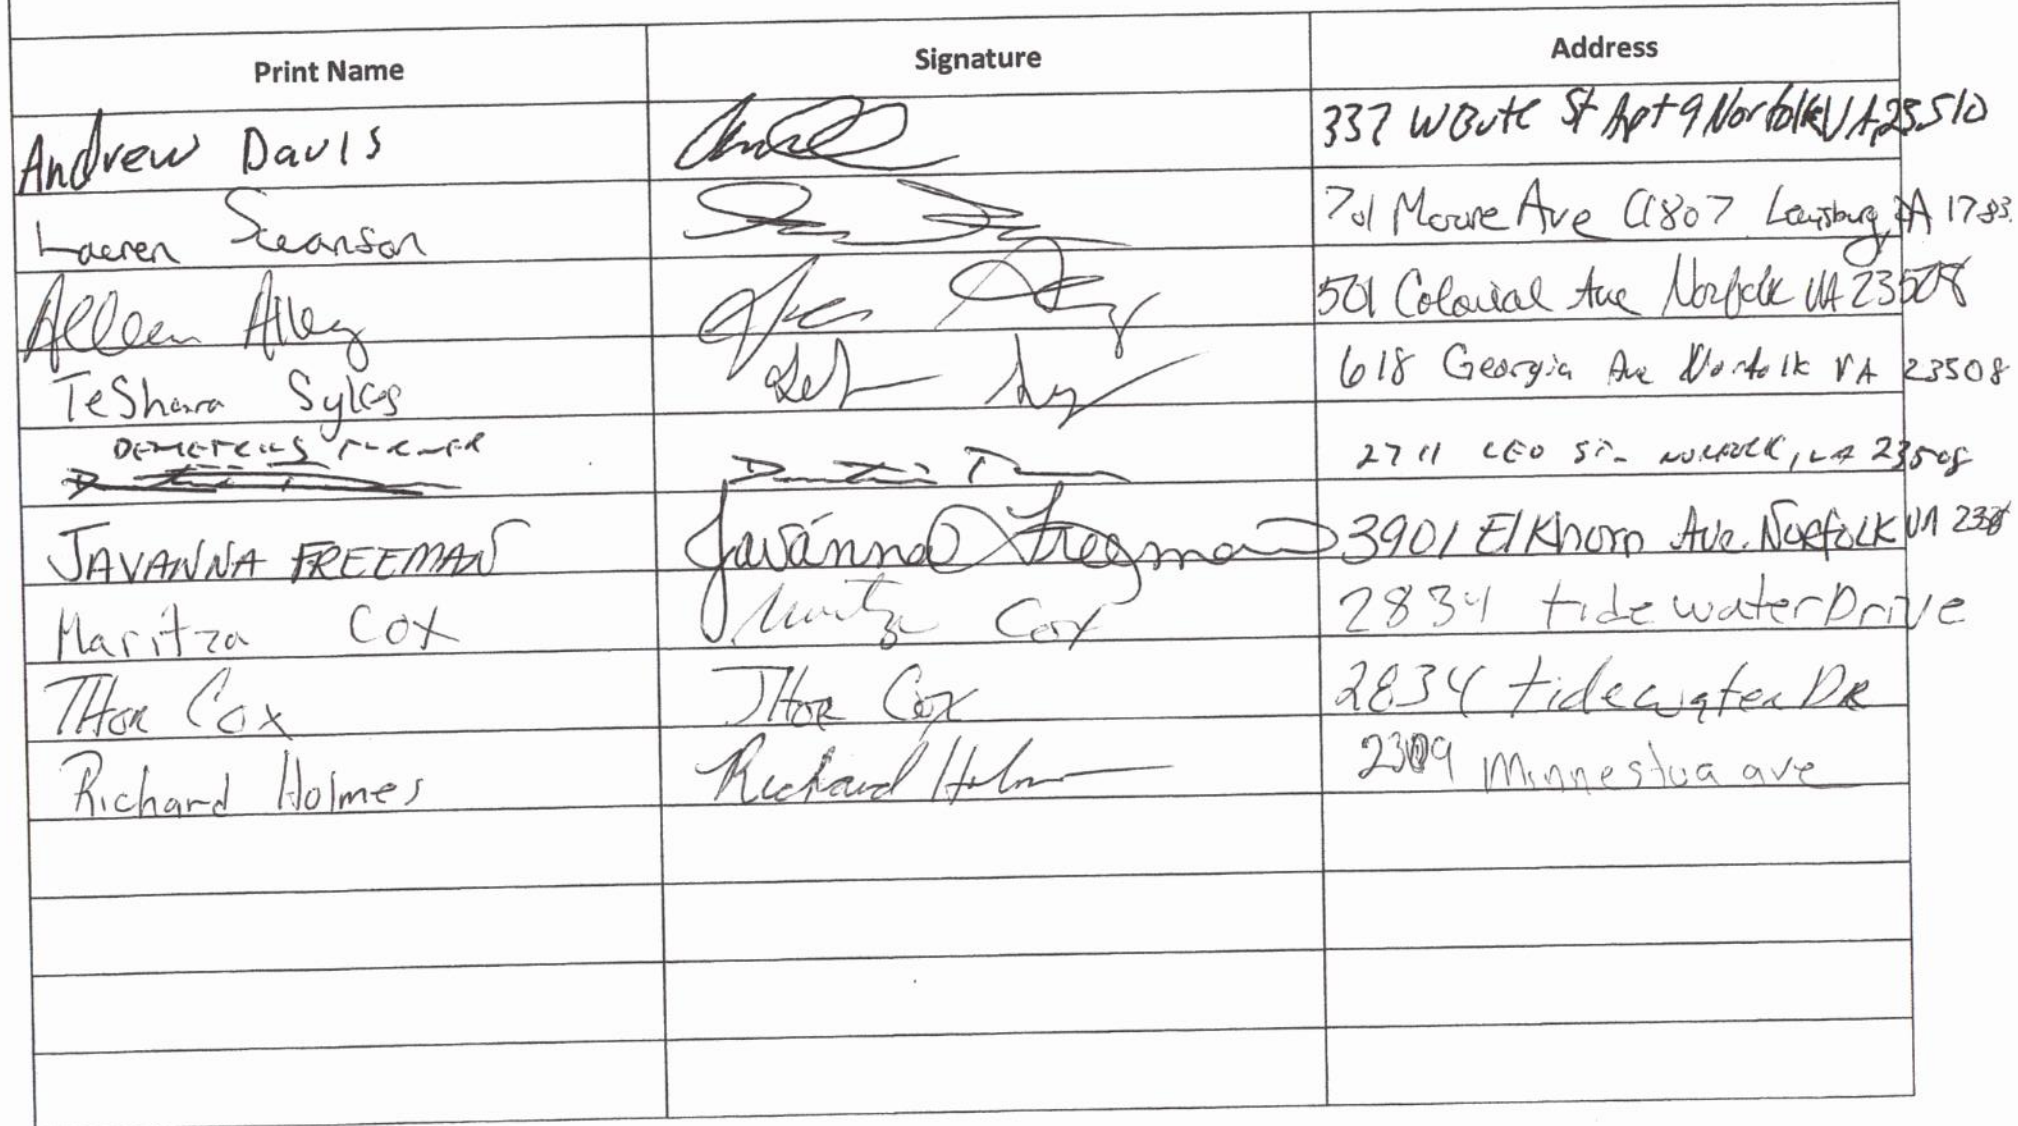 Print Name Signature Address
Andrew Davis 337 W Bute St Apt 9 Norfolk VA 23510
Lauren Swanson 701 Moore Ave C1807 Lewisburg, PA 1783
Alleen Alley 501 Colonial Ave Norfolk VA 23508
TeShara Sykes 618 Georgia Ave Norfolk VA 23508
DEMETRIUS TURNER 2711 LEO ST. NORFOLK, VA 23508
JAVANNA FREEMAN Javanna Freeman 3901 Elkhorn Ave. Norfolk VA
Maritza Cox Maritza Cox 2834 tidewater Drive
THOR Cox THOR Cox 2834 tidewater DR
Richard Holmes Richard Holmes Minnestoa ave